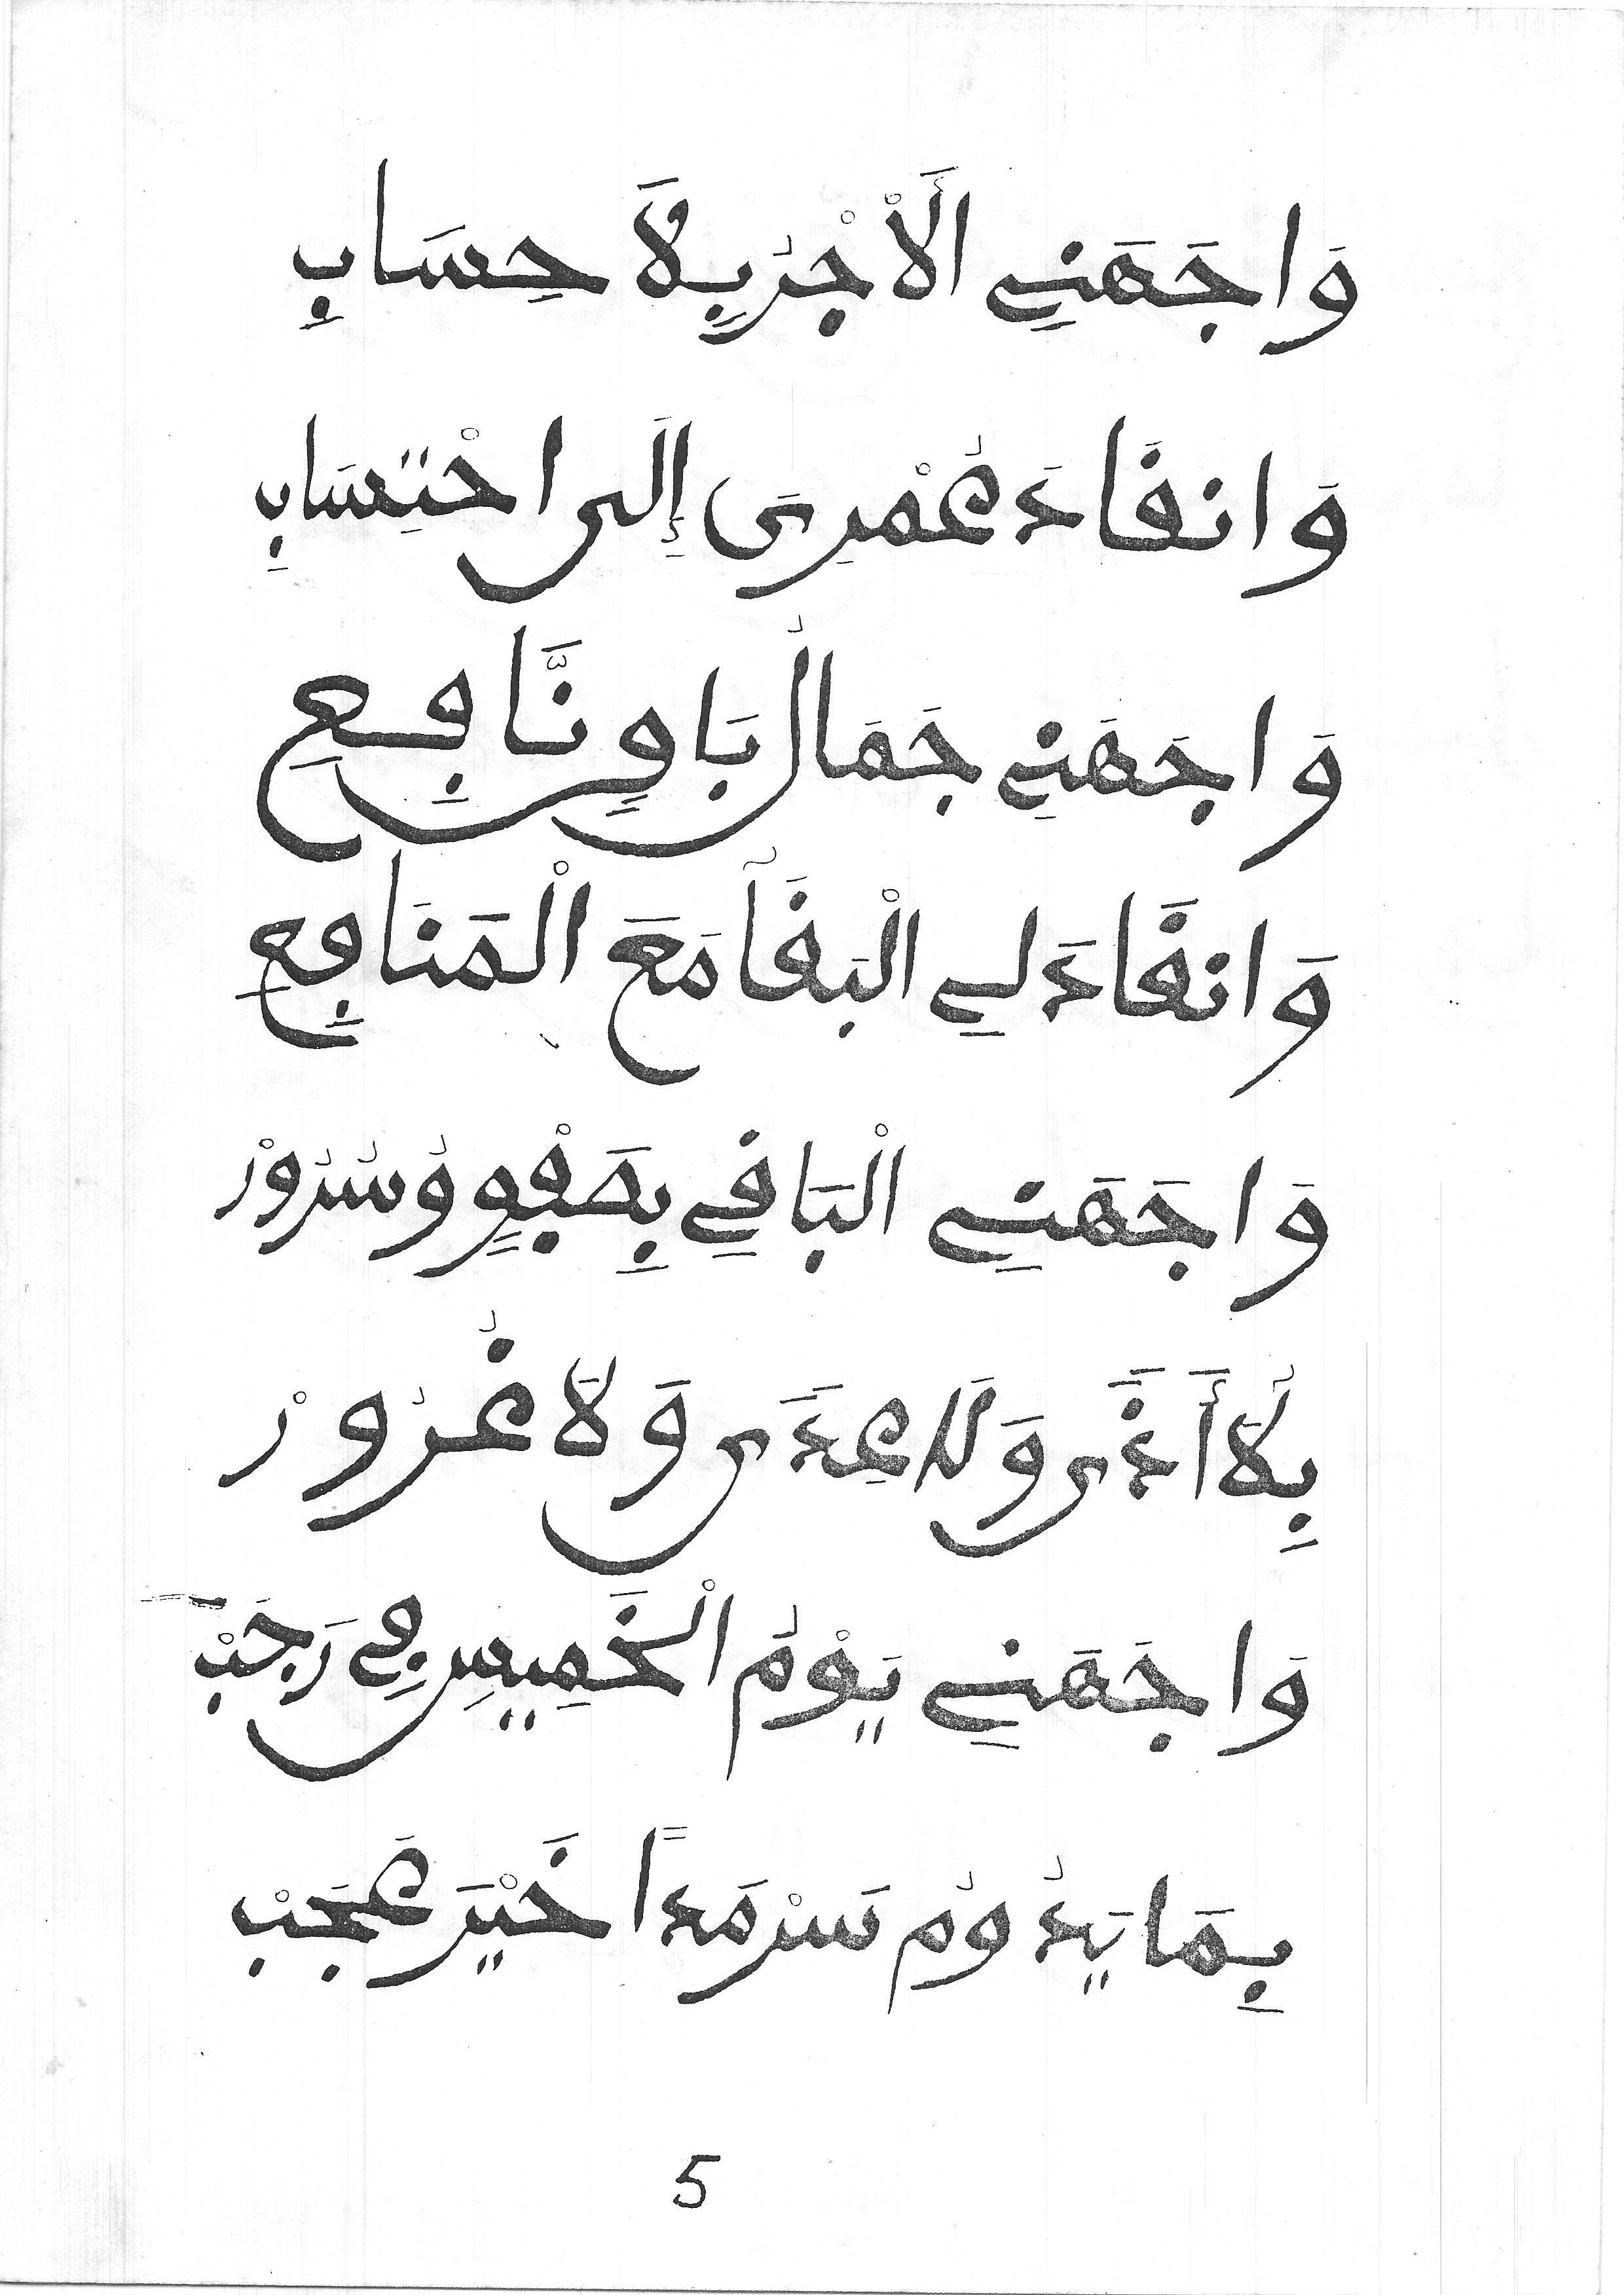 وَاجَهَنِي الَأجْرُ بِلَا حِسَابِ
وَانقَادَ عُمْرِى إِلَى احْتِسَابِ
وَاجَهَنِي جَمَالُ بَاقٍ نَّافِعِ
وَانقَادَ لِي الْبَقَآ مَعَ الْمَنَافِعِ
وَاجَهَنِي الْبَاقِي بِصَفْوٍ وُسُرُورْ
بِلَا أَذًى وَلَا عِدًى وَلَا غُرُورْ
وَاجَهَنِي يَوْمُ الْخَمِيسِ فِي رَجَبْ
بِمَا يَدُومُ سَرْمَدًا خَيْرَ عَجَبْ
5